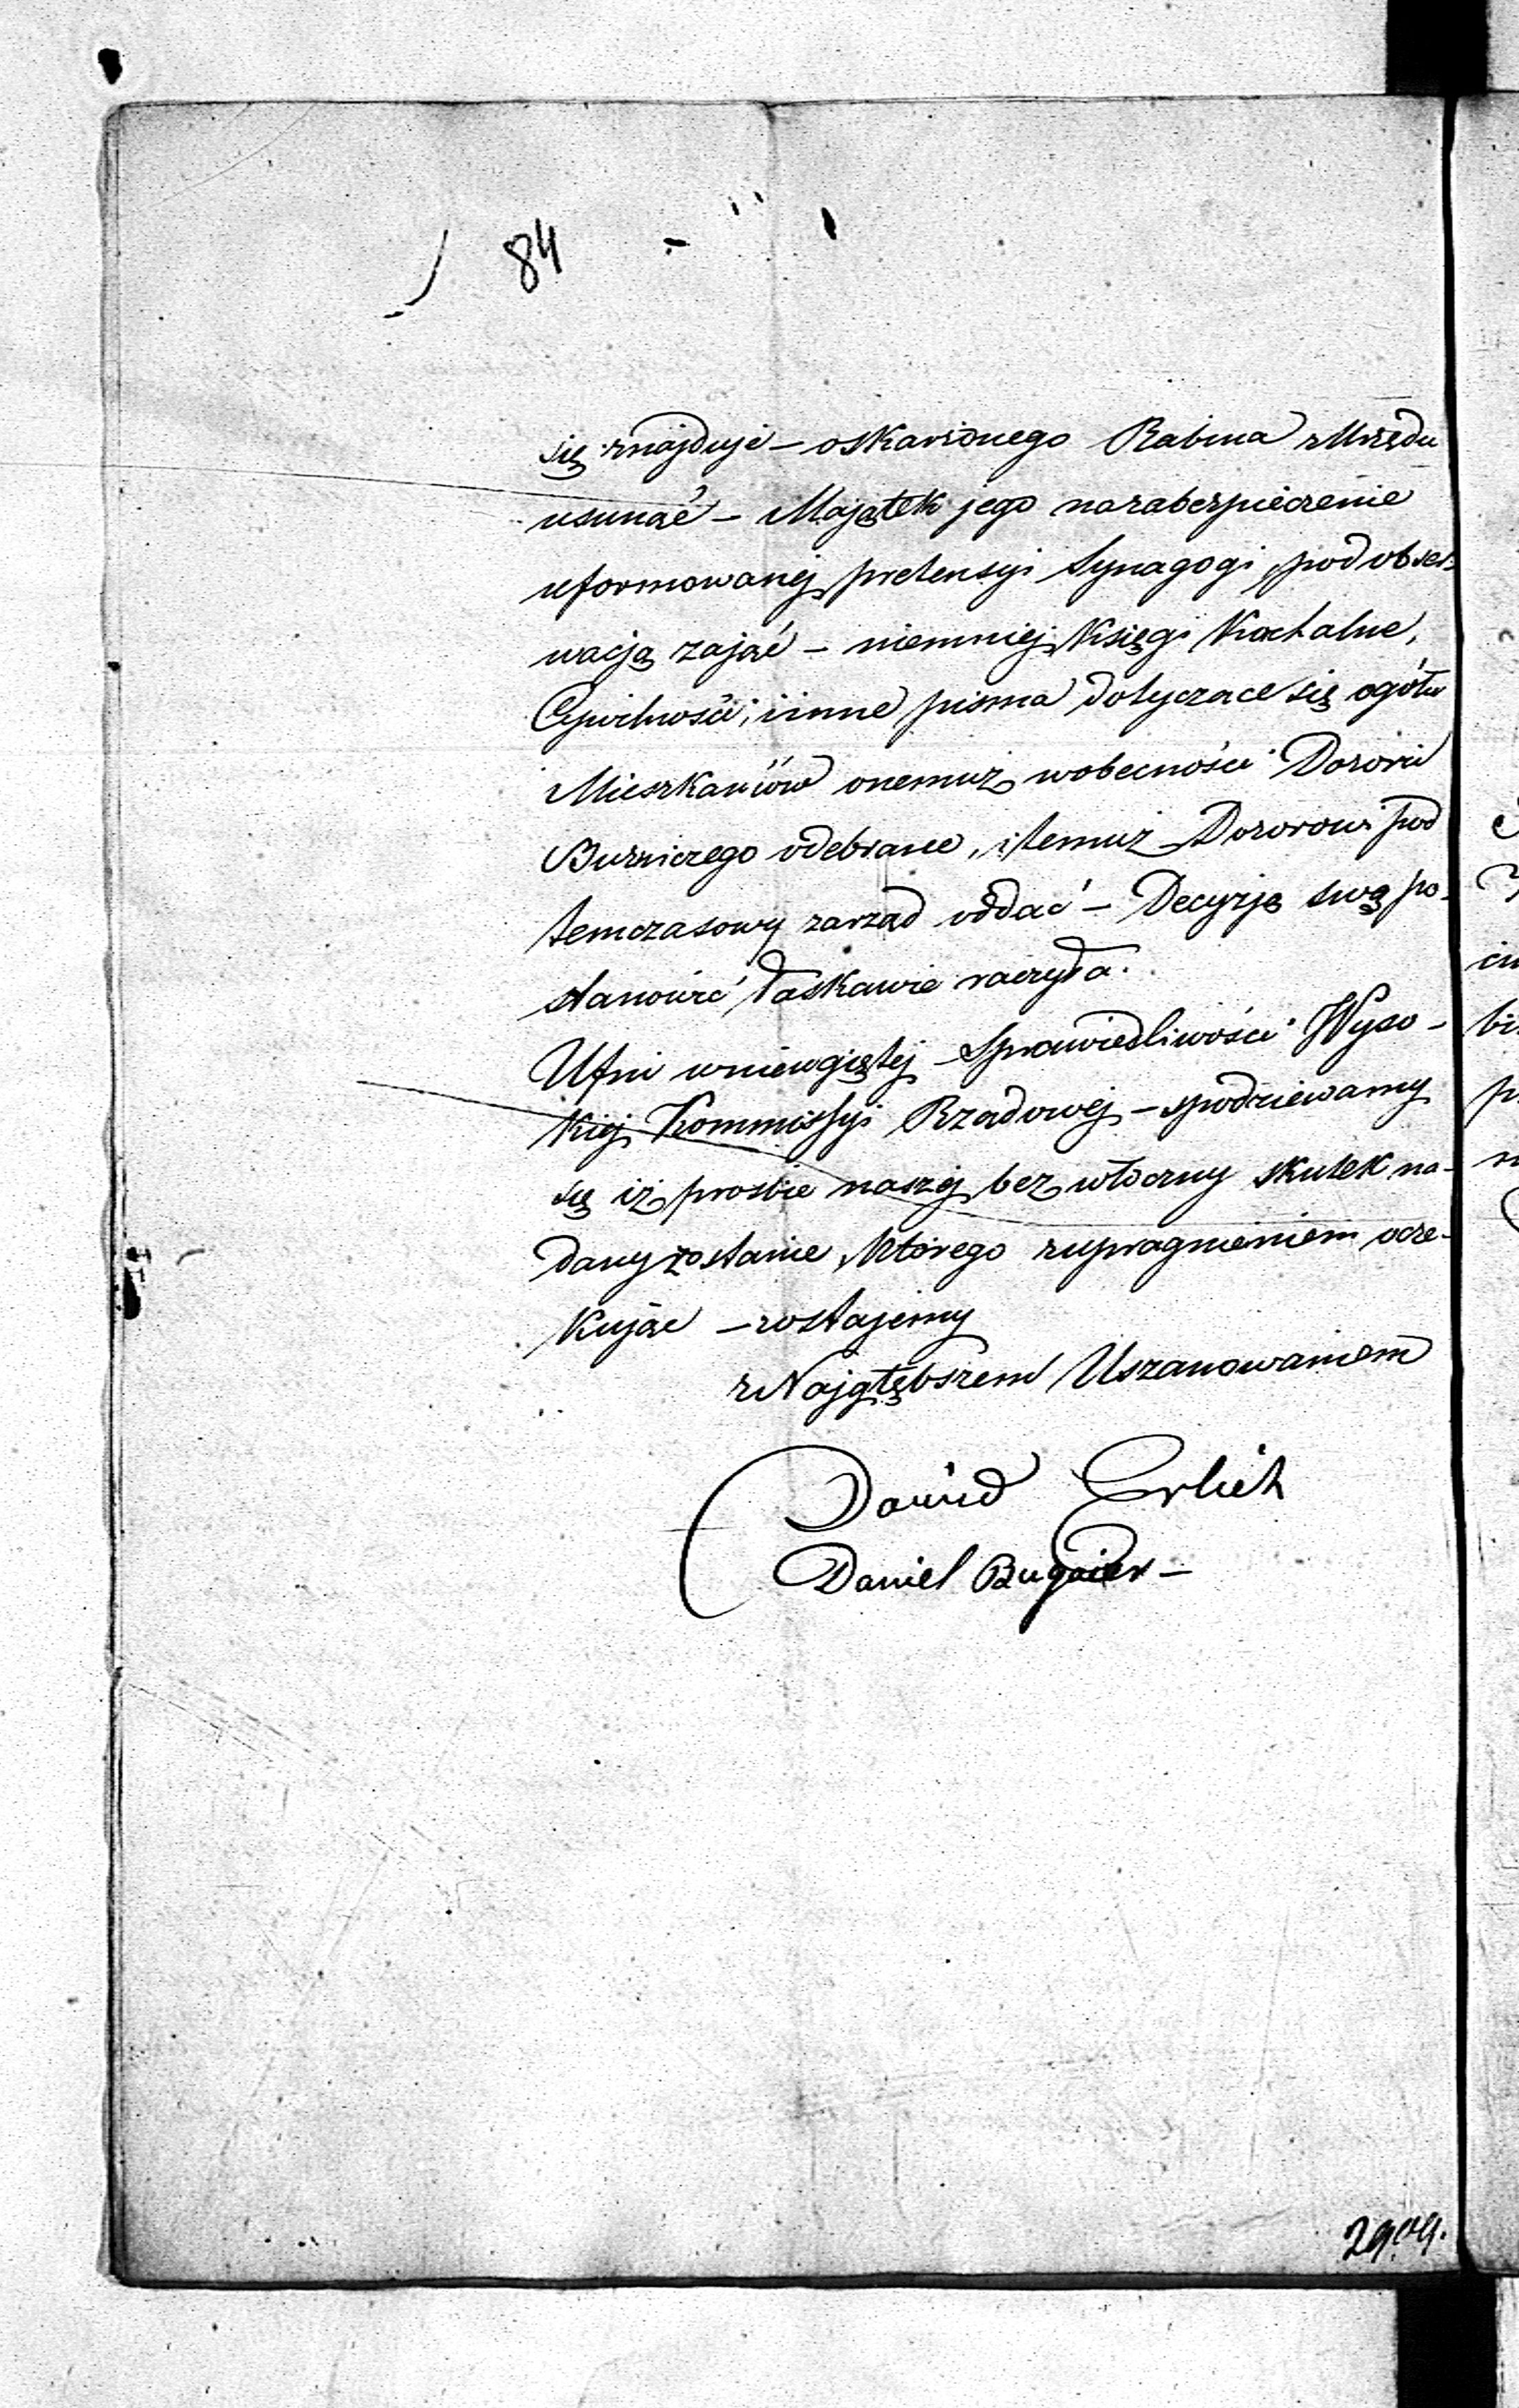 84
się znajduje – oskarżonego Rabina z Urzędu
usunąć – Majątek jego na zabezpieczenie
uformowanej pretensyi Synagogi pod obser-
wacją zająć – niemniej Księgi Kachalne,
i inne pisma dotyczące się ogółu
Mieszkańców onemuż w obecności Dozoru
Bużniczego odebrane, i temuż Dozorowi pod
temczasowy zarząd oddać – Decyzję swą po-
stanowić łaskawie raczyła.
Ufni w niewgiętej Sprawiedliwości Wyso-
kiej Kommissyi Rządowej – spodziewamy
się iż prośbie naszej bezwłoczny skutek na-
dany zostanie, którego z upragnieniem ocze-
kując – zostajemy
z Najgłębszem Uszanowaniem
Dawid Erlich
Daniel Bugaier –